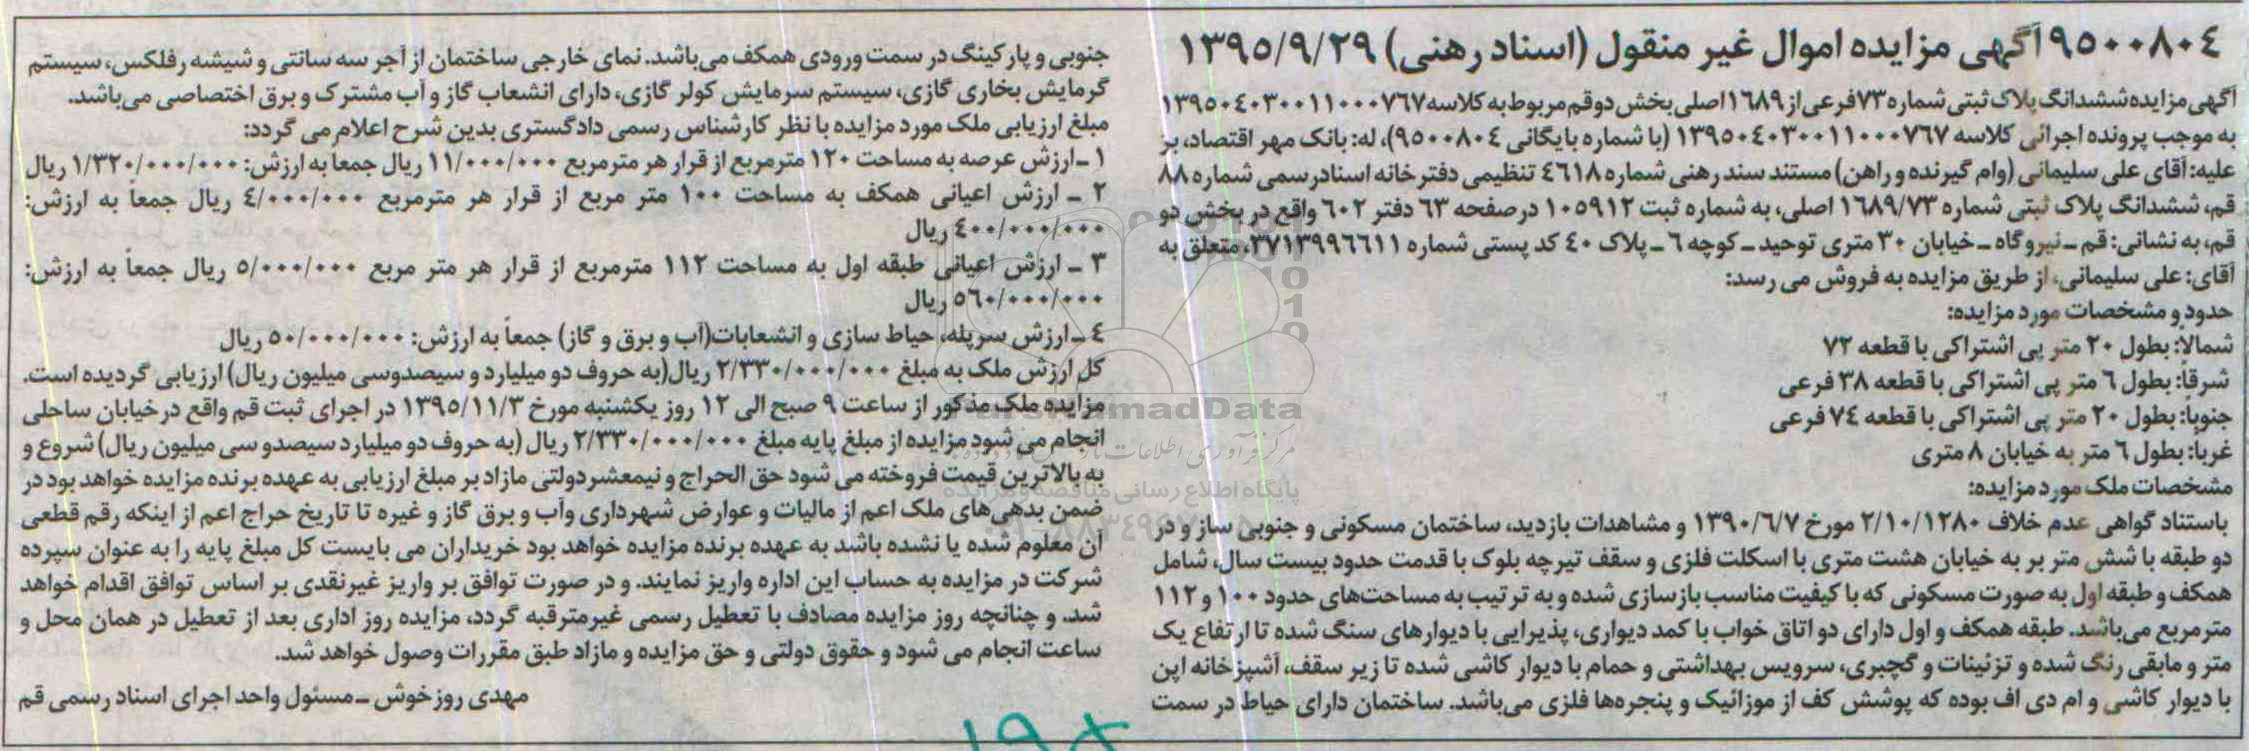 ۹۵۰۰۸۰۴ آگهی مزایده اموال غیر منقول (اسناد رهنی) ۱۳۹۵/۹/۲۹
آگهی مزایده ششدانگ پلاک ثبتی شماره ۷۳ فرعی از ۱۶۸۹ اصلی بخش دو قم مربوط به کلاسه ۱۳۹۵۰۴۰۳۰۰۱۱۰۰۰۷۶۷
به موجب پرونده اجرائی کلاسه ۱۳۹۵۰۴۰۳۰۰۱۱۰۰۰۷۶۷ (با شماره بایگانی ۹۵۰۰۸۰۴)، له: بانک مهر اقتصاد، بر
علیه: آقای علی سلیمانی (وام گیرنده و راهن) مستند سند رهنی شماره ۴۶۱۸ تنظیمی دفترخانه اسناد رسمی شماره ۸۸
قم، ششدانگ پلاک ثبتی شماره ۱۶۸۹/۷۳ اصلی، به شماره ثبت ۱۰۵۹۱۲ در صفحه ۶۳ دفتر ۶۰۲ واقع در بخش دو
قم، به نشانی: قم ـ نیروگاه ـ خیابان ۳۰ متری توحید ـ کوچه ۶ ـ پلاک ۴۰ کد پستی شماره ۳۷۱۳۹۹۶۶۱۱، متعلق به
آقای: علی سلیمانی، از طریق مزایده به فروش می رسد:
حدود و مشخصات مورد مزایده:
شمالاً: بطول ۲۰ متر پی اشتراکی با قطعه ۷۲
شرقاً: بطول ۶ متر پی اشتراکی با قطعه ۳۸ فرعی
جنوباً: بطول ۲۰ متر پی اشتراکی با قطعه ۷۴ فرعی
غرباً: بطول ۶ متر به خیابان ۸ متری
مشخصات ملک مورد مزایده:
باستناد گواهی عدم خلاف ۲/۱۰/۱۲۸۰ مورخ ۱۳۹۰/۶/۷ و مشاهدات بازدید، ساختمان مسکونی و جنوبی ساز و در
دو طبقه با شش متر بر به خیابان هشت متری با اسکلت فلزی و سقف تیرچه بلوک با قدمت حدود بیست سال، شامل
همکف و طبقه اول به صورت مسکونی که با کیفیت مناسب بازسازی شده و به ترتیب به مساحت‌های حدود ۱۰۰ و ۱۱۲
مترمربع می‌باشد. طبقه همکف و اول دارای دو اتاق خواب با کمد دیواری، پذیرایی با دیوارهای سنگ شده تا ارتفاع یک
متر و مابقی رنگ شده و تزئینات و گچبری، سرویس بهداشتی و حمام با دیوار کاشی شده تا زیر سقف، آشپزخانه اپن
با دیوار کاشی و ام دی اف بوده که پوشش کف از موزائیک و پنجره‌ها فلزی می‌باشد. ساختمان دارای حیاط در سمت
جنوبی و پارکینگ در سمت ورودی همکف می‌باشد. نمای خارجی ساختمان از آجر سه سانتی و شیشه رفلکس، سیستم
گرمایش بخاری گازی، سیستم سرمایش کولر گازی، دارای انشعاب گاز و آب مشترک و برق اختصاصی می‌باشد.
مبلغ ارزیابی ملک مورد مزایده با نظر کارشناس رسمی دادگستری بدین شرح اعلام می گردد:
۱ ـ ارزش عرصه به مساحت ۱۲۰ مترمربع از قرار هر مترمربع ۱۱/۰۰۰/۰۰۰ ریال جمعاً به ارزش: ۱/۳۲۰/۰۰۰/۰۰۰ ریال
۲ ـ ارزش اعیانی همکف به مساحت ۱۰۰ متر مربع از قرار هر مترمربع ۴/۰۰۰/۰۰۰ ریال جمعاً به ارزش:
۴۰۰/۰۰۰/۰۰۰ ریال
۳ ـ ارزش اعیانی طبقه اول به مساحت ۱۱۲ مترمربع از قرار هر متر مربع ۵/۰۰۰/۰۰۰ ریال جمعاً به ارزش:
۵۶۰/۰۰۰/۰۰۰ ریال
۴ ـ ارزش سرپله، حیاط سازی و انشعابات(آب و برق و گاز) جمعاً به ارزش: ۵۰/۰۰۰/۰۰۰ ریال
کل ارزش ملک به مبلغ ۲/۳۳۰/۰۰۰/۰۰۰ ریال(به حروف دو میلیارد و سیصدوسی میلیون ریال) ارزیابی گردیده است.
مزایده ملک مذکور از ساعت ۹ صبح الی ۱۲ روز یکشنبه مورخ ۱۳۹۵/۱۱/۳ در اجرای ثبت قم واقع در خیابان ساحلی
انجام می شود مزایده از مبلغ پایه مبلغ ۲/۳۳۰/۰۰۰/۰۰۰ ریال (به حروف دو میلیارد سیصدو سی میلیون ریال) شروع و
به بالاترین قیمت فروخته می شود حق الحراج و نیمعشر دولتی مازاد بر مبلغ ارزیابی به عهده برنده مزایده خواهد بود در
ضمن بدهی‌های ملک اعم از مالیات و عوارض شهرداری وآب و برق گاز و غیره تا تاریخ حراج اعم از اینکه رقم قطعی
آن معلوم شده یا نشده باشد به عهده برنده مزایده خواهد بود خریداران می بایست کل مبلغ پایه را به عنوان سپرده
شرکت در مزایده به حساب این اداره واریز نمایند. و در صورت توافق بر واریز غیرنقدی بر اساس توافق اقدام خواهد
شد. و چنانچه روز مزایده مصادف با تعطیل رسمی غیرمترقبه گردد، مزایده روز اداری بعد از تعطیل در همان محل و
ساعت انجام می شود و حقوق دولتی و حق مزایده و مازاد طبق مقررات وصول خواهد شد.
مهدی روزخوش ـ مسئول واحد اجرای اسناد رسمی قم